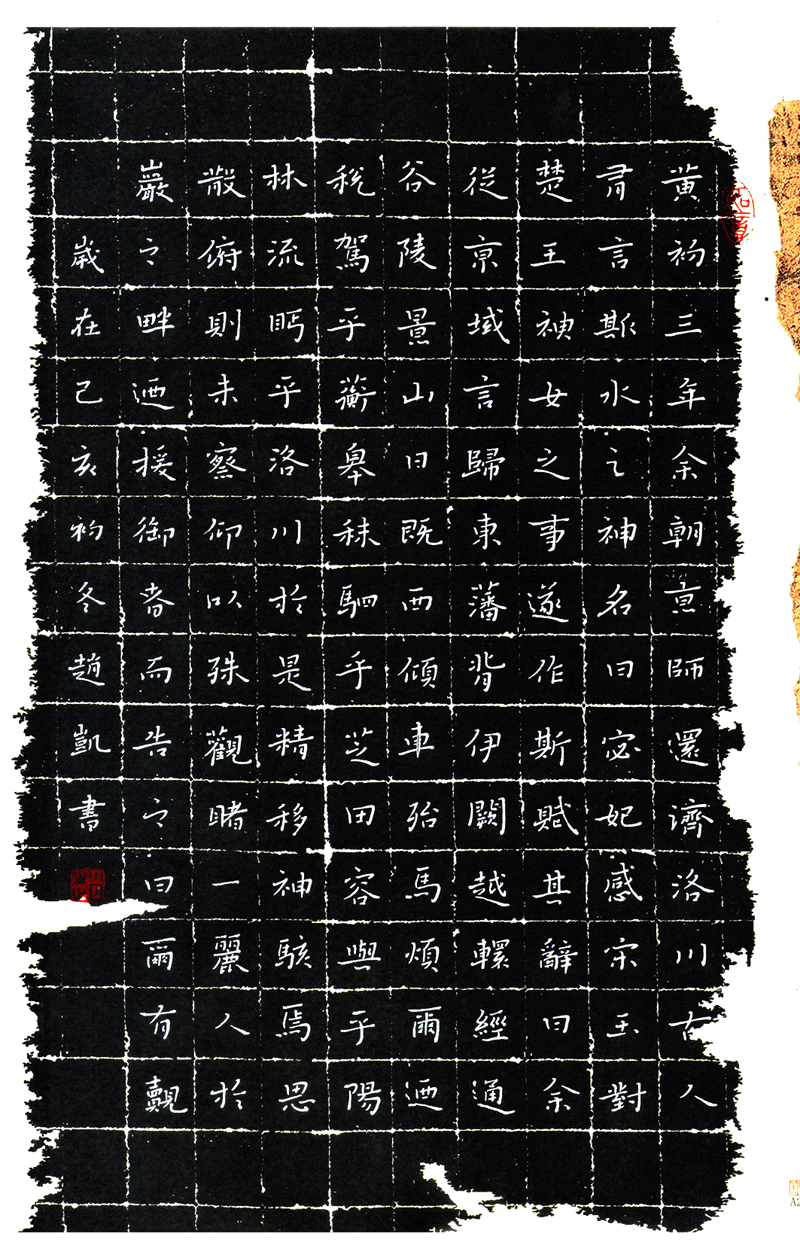 黄初三年余朝京師還濟洛川古人
有言斯水之神名曰宓妃感宋玉對
楚王神女之事遂作斯賦其辭曰余
從京域言歸東藩背伊闕越轘經通
谷陵景山日既西傾車殆馬煩爾迺
稅駕乎蘅皋秣駟乎芝田容與乎陽
林流眄乎洛川於是精移神駭焉思
散俯則未察仰以殊觀睹一麗人於
巖之畔迺援御者而告之曰爾有覿
歲在己亥初冬趙凱書